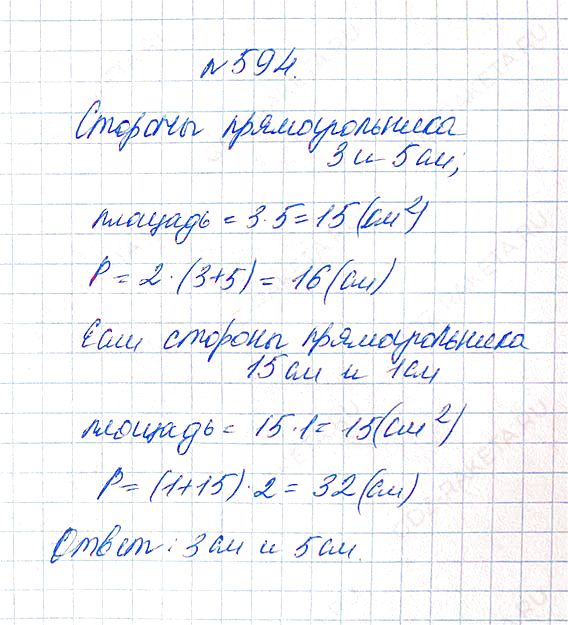 №594.
Стороны прямоугольника
3 и 5 см;
площадь = 3·5 = 15 (см²)
P = 2·(3+5) = 16 (см)
Если стороны прямоугольника
15 см и 1 см
площадь = 15·1 = 15 (см²)
P = (1+15)·2 = 32 (см)
Ответ: 3 см и 5 см.